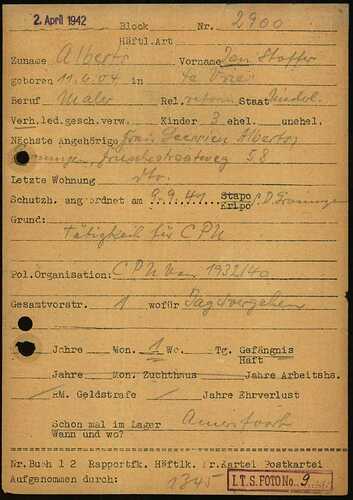 2. April 1942
Block Nr. 2900
Häftl.Art
Zuname Alberts Vorname Jan Stoffer
geboren 11.6.04 in
Beruf Maler Rel. reform Staat
Verh.led.gesch.verw. Kinder 3 ehel. unehel.
Nächste Angehörige Frau Alberts
58
Letzte Wohnung dto.
Schutzh. angeordnet am 9.9.41 Stapo Kripo
Grund:
Tätigkeit für CPN
Pol.Organisation: CPN von 1932/40
Gesamtvorstr. 1 wofür Jagdvergehen
Jahre Mon. 1 Wo. Tg. Gefängnis
Haft
Jahre Mon. Zuchthaus Jahre Arbeitsh.
RM. Geldstrafe Jahre Ehrverlust
Schon mal im Lager Amersfoort
Wann und wo?
Nr.Buch 1 2 Rapportfk. Häftlk. Nr.Kartei Postkartei
Aufgenommen durch: 1345
I.T.S. FOTO No. 9